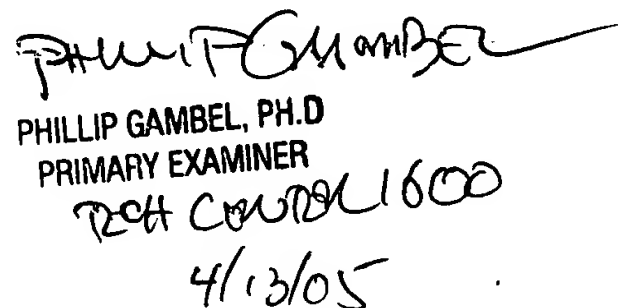 PHILLIP GAMBEL
PHILLIP GAMBEL, PH.D
PRIMARY EXAMINER
TECH CENTER 1600
4/13/05